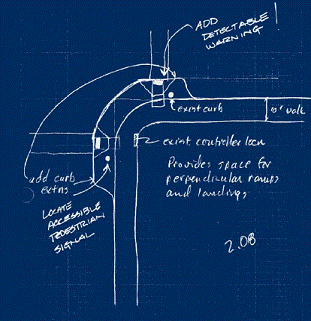 ADD
DETECTABLE
WARNING !
exist curb
6' walk
exist controller locn
Provides space for
perpendicular ramps
and landings
add curb
extns
LOCATE
ACCESSIBLE
PEDESTRIAN
SIGNAL
2.08